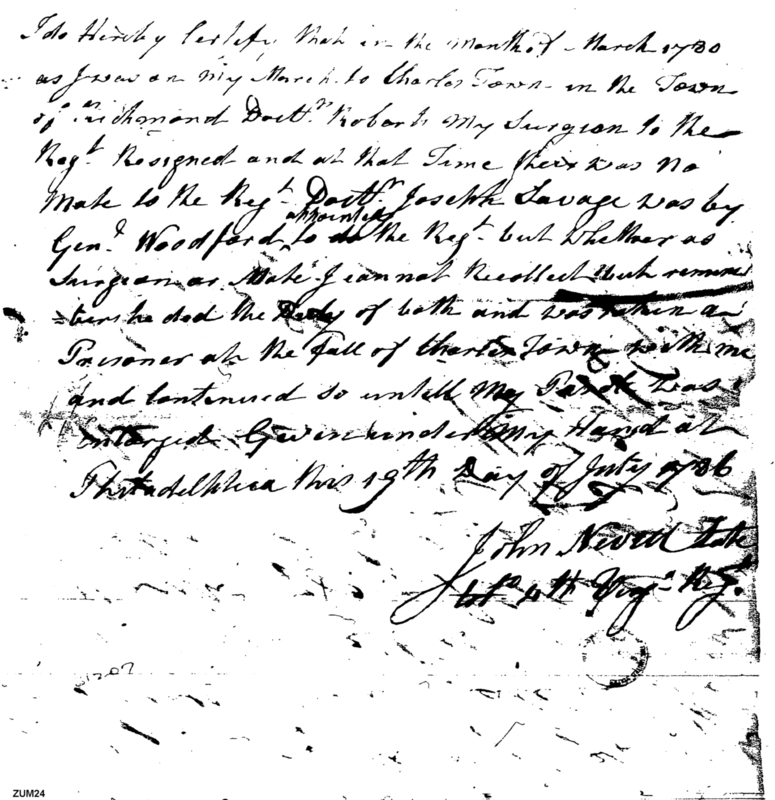 I do Hereby Certify that in the Month of March 1780
as I was on my March to Charles Town in the Town
of Richmond Doctr. Roberts My Surgeon to the
Regt. Resigned and at that Time there was no
Mate to the Regt. Doctr. Joseph Savage was by
appointed
Genl. Woodford to do the Regt. but whether as
Surgeon or Mate I cannot Recollect but remem
=bers he ded the Duty of both and was taken a
Prisoner at the fall of Charles Town with me
and Contenued so untill My Parole was
Enlarged Given under My Hand at
Philadelphia this 19th Day of July 1786
John Nevill late
Col 4th Virga Regt.
1202
ZUM24